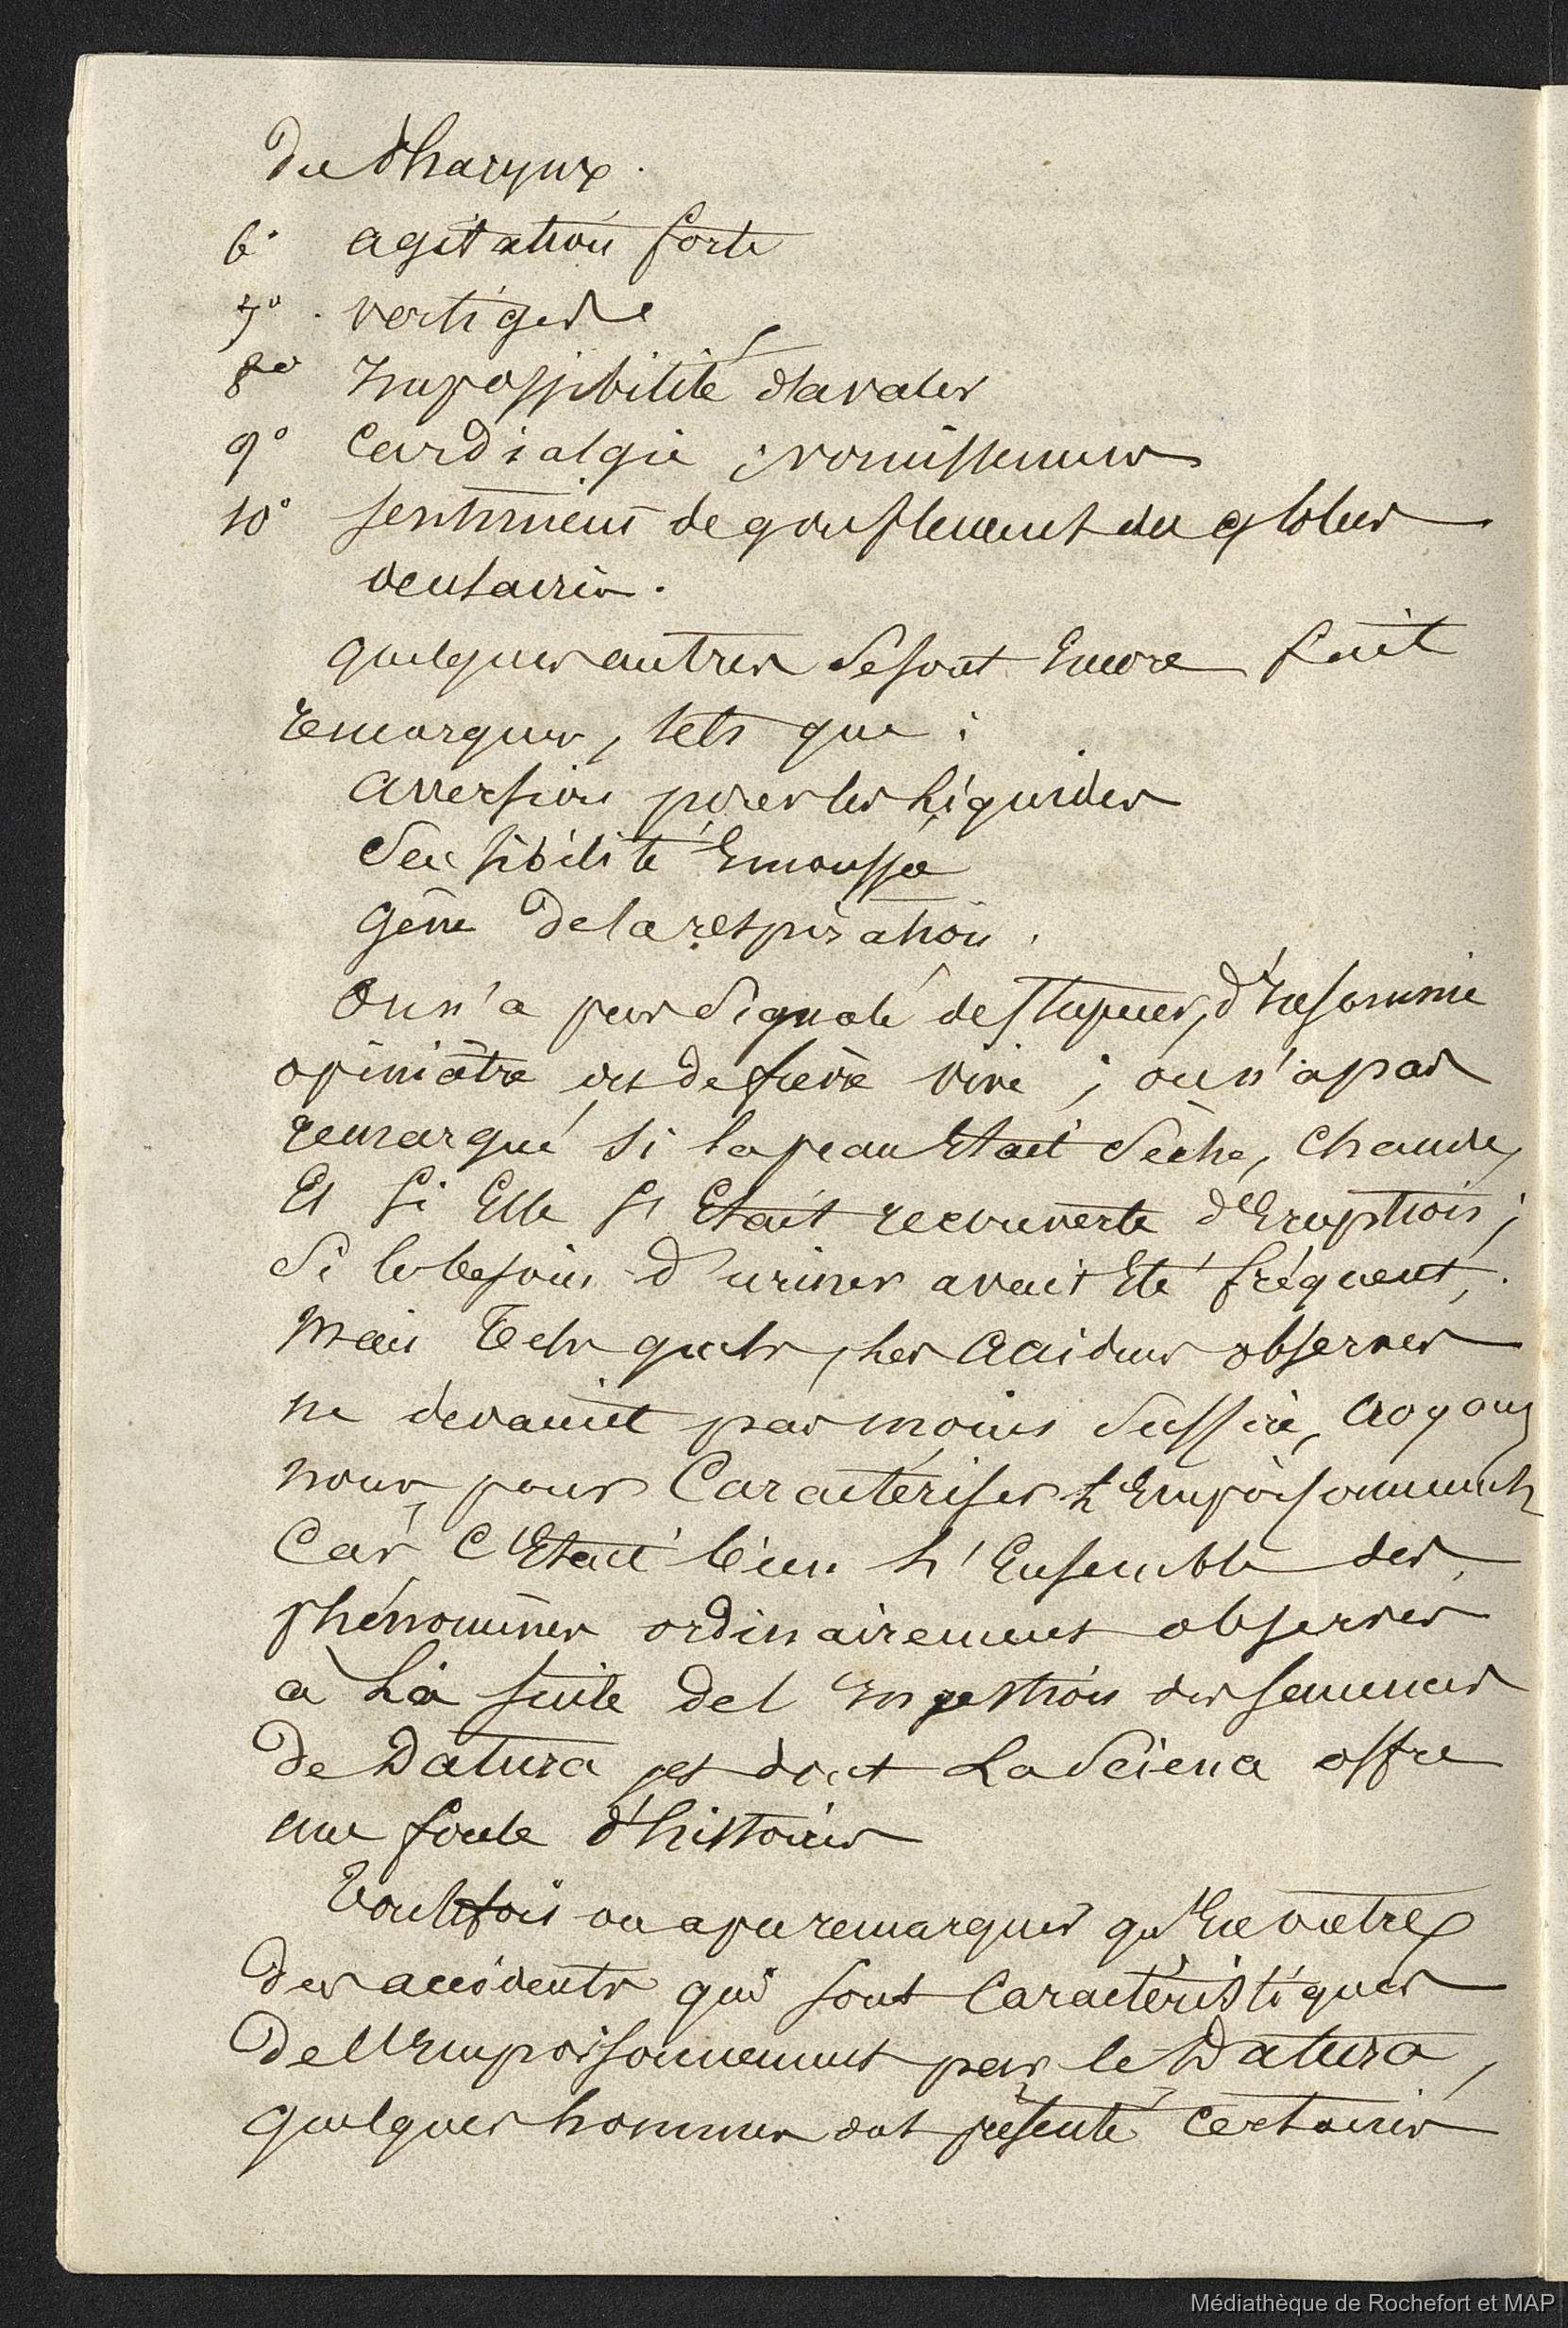 du Pharynx.
6° agitation forte
7° vertiges
8° Impossibilité d'avaler
9° Cardialgie ; vomissemens
10° sentiment de gonflement du globes
oculaires.
quelques autres se sont Encore fait
remarquer, tels que :
aversion pour les liquides
Sensibilité Emoussée
gêne de la respiration.
On n'a pas signalé de stupeur, d'Insomnie
opiniâtre et de fièvre vive ; on n'a pas
remarqué si la peau Etait sèche, chaude,
Et si Elle s'Etait recouverte d'Eruptions ;
Si le besoin d'uriner avait Eté fréquent,
Mais Tels quels, les accidens observés
ne devaient pas moins suffire, croyons
nous, pour Caractériser l'Empoisonnement
Car c'Etait bien l'Ensemble des
phénomènes ordinairement observés
à la suite de l'Ingestion des semences
de Datura et dont la Science offre
une foule d'histoires
Toutefois on a pu remarquer qu'En outre
des accidents qui sont Caractéristiques
de l'Empoisonnement par le Datura,
quelques hommes ont présenté certains
Médiathèque de Rochefort et MAP